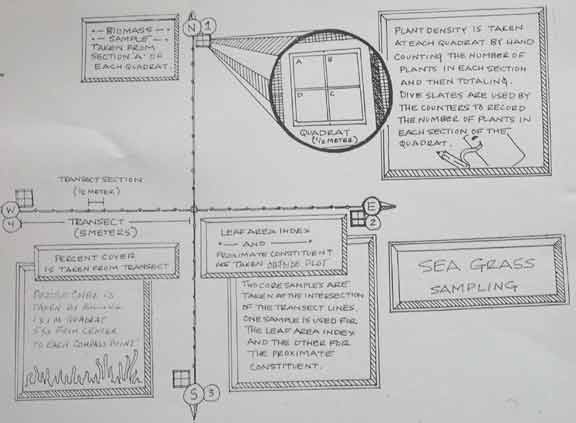 BIOMASS
SAMPLE
TAKEN FROM
SECTION "A" OF
EACH QUADRAT.
N 1
A B
D C
QUADRAT
(1/2 METER)
PLANT DENSITY IS TAKEN
AT EACH QUADRAT BY HAND
COUNTING THE NUMBER OF
PLANTS IN EACH SECTION
AND THEN TOTALING.
DIVE SLATES ARE USED BY
THE COUNTERS TO RECORD
THE NUMBER OF PLANTS IN
EACH SECTION OF THE
QUADRAT.
TRANSECT SECTION
(1/2 METER)
W
4
E
2
TRANSECT
(5 METERS)
PERCENT COVER
IS TAKEN FROM TRANSECT
PERCENT COVER IS
TAKEN BY
1 X 1 M QUADRAT
5 X FROM CENTER
TO EACH COMPASS POINT
LEAF AREA INDEX
AND
PROXIMATE CONSTITUENT
TAKEN OUTSIDE PLOT
TWO CORE SAMPLES ARE
TAKEN AT THE INTERSECTION
OF THE TRANSECT LINES.
ONE SAMPLE IS USED FOR
THE LEAF AREA INDEX
AND THE OTHER FOR
THE PROXIMATE
CONSTITUENT.
SEA GRASS
SAMPLING
S 3